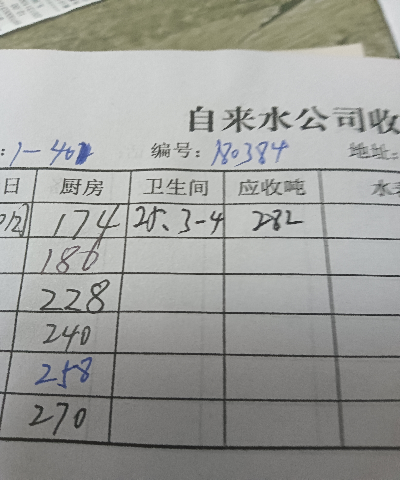 自来水公司收
: 1-401 编号: 180384 地址:
日 厨房 卫生间 应收吨
174 25.3-4 282
186
228
240
258
270